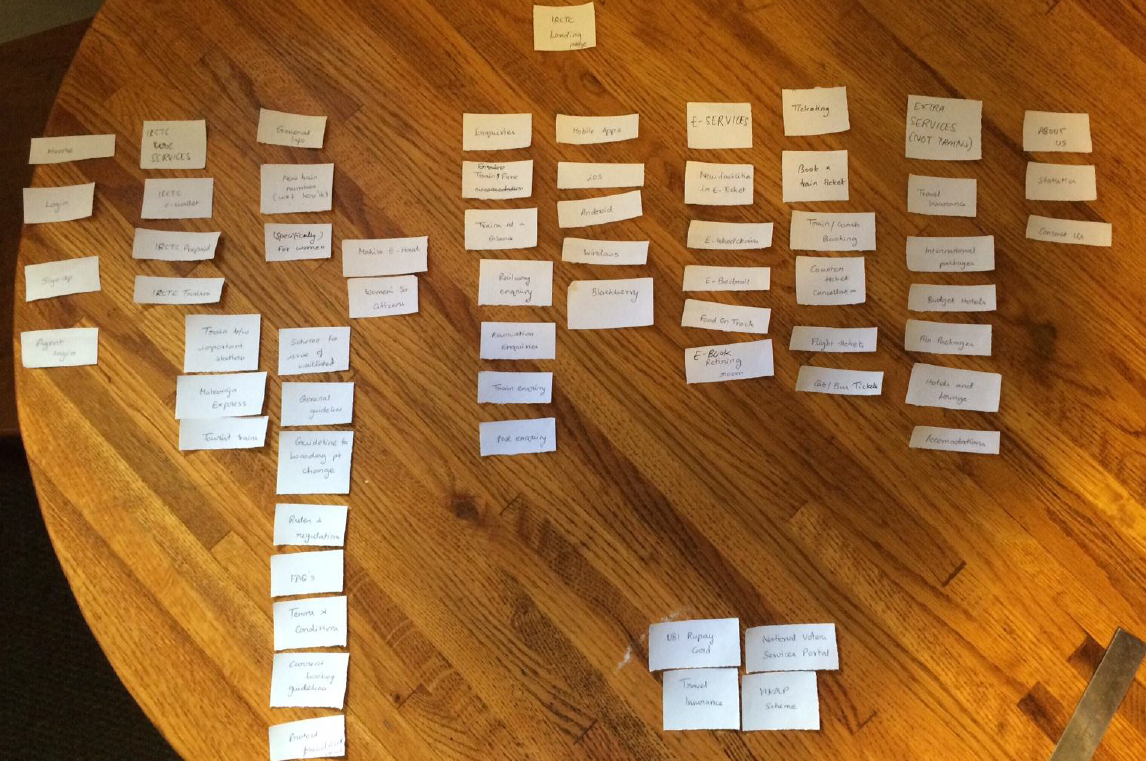 IRCTC
Landing
page
Home
Login
Sign up
Agent
login
IRCTC
SERVICES
IRCTC
e-wallet
IRCTC Prepaid
IRCTC Trains
Train b/w
important
stations
Maharaja
Express
Tourist train
General
Info
New train
number
(Specifically)
For women
Mobile E-
Women Sr.
Citizens
Scheme for
issue of
waitlisted
General
guideline
Guideline to
boarding pt
change
Rules &
regulation
FAQ's
Terms &
Conditions
Current
booking
guideline
Protect
Enquiries
Train/Fare
Train at a
Glance
Railway
enquiry
Reservation
enquiries
Train enquiry
PNR enquiry
Mobile Apps
iOS
Android
Windows
Blackberry
E-SERVICES
New facilities
in E-Ticket
E-
E-Bedroll
Food on Track
E-Book
Retiring
room
Ticketing
Book a
train ticket
Train/Coach
Booking
Counter
ticket
Cancellation
Flight tickets
Cab/Bus Tickets
EXTRA
SERVICES
(NOT TRAINS)
Travel
Insurance
International
packages
Budget Hotels
Air Packages
Hotels and
lounge
Accomodations
ABOUT
US
Statistics
Contact Us
UBI Rupay
Card
National Voters
Services Portal
Travel
Insurance
VIKALP
Scheme